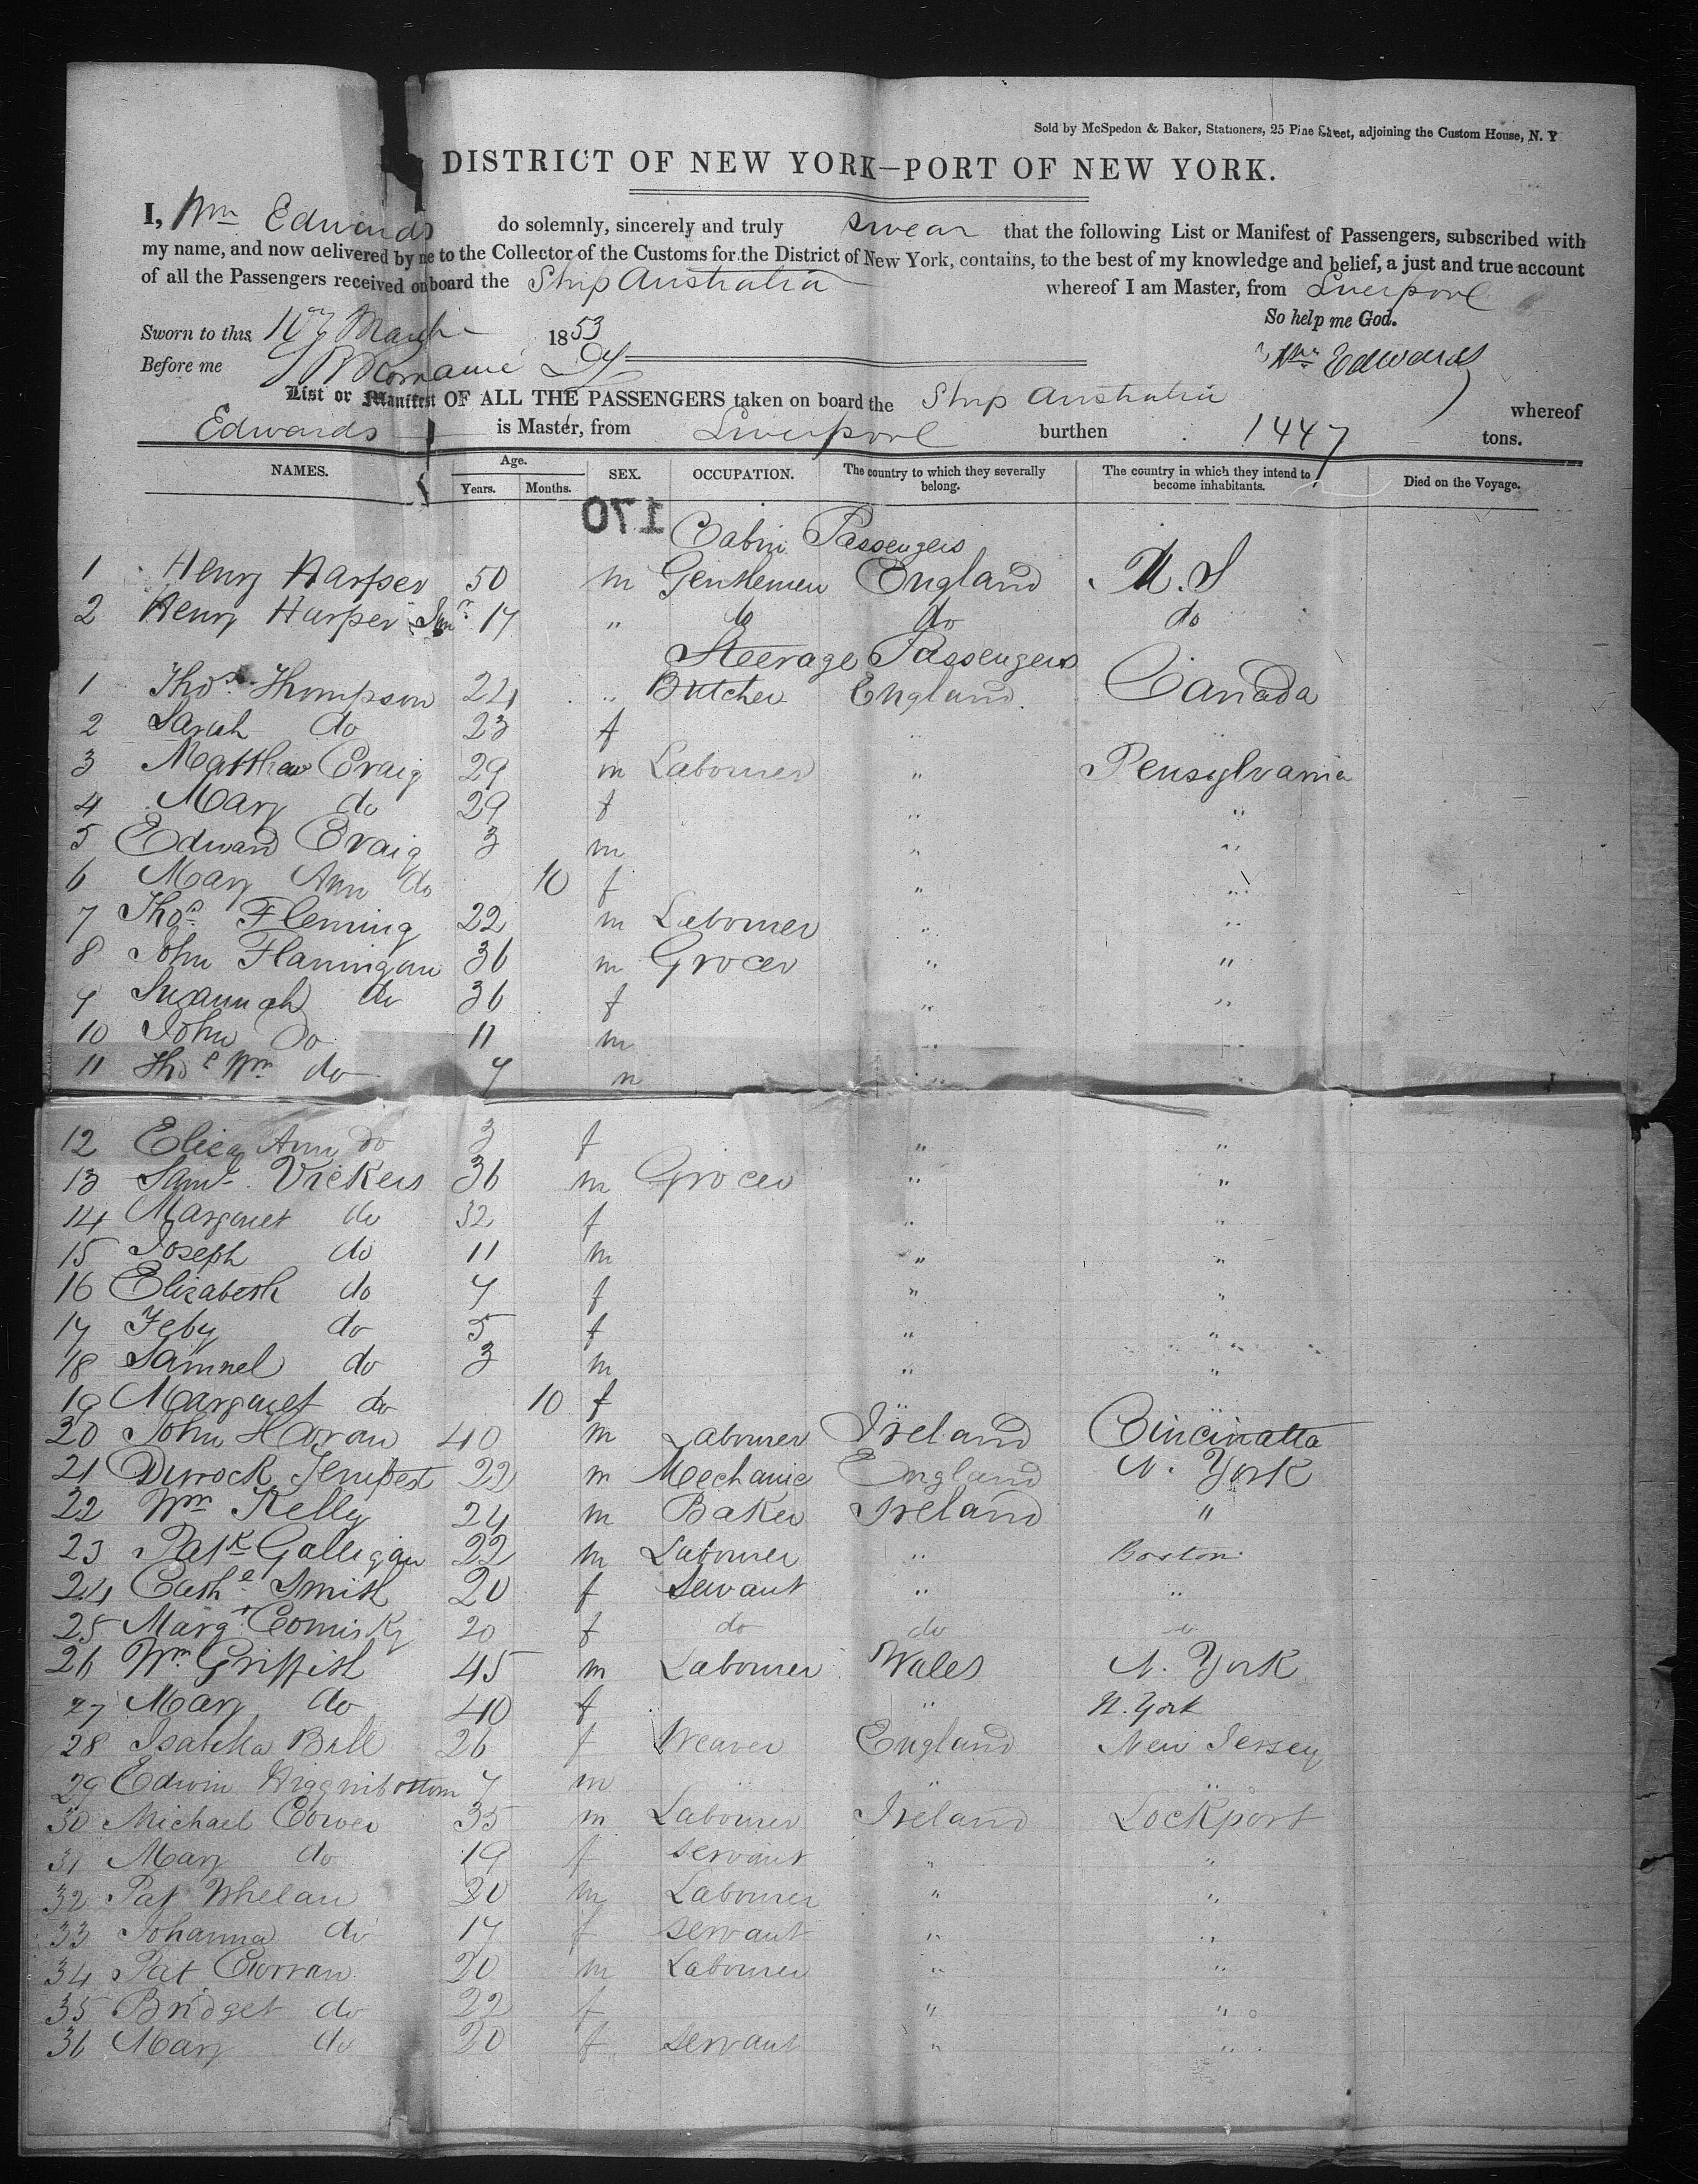 Sold by McSpedon & Baker, Stationers, 25 Pine Street, adjoining the Custom House, N. Y
DISTRICT OF NEW YORK—PORT OF NEW YORK.
I, Wm Edwards do solemnly, sincerely and truly swear that the following List or Manifest of Passengers, subscribed with
my name, and now delivered by me to the Collector of the Customs for the District of New York, contains, to the best of my knowledge and belief, a just and true account
of all the Passengers received on board the Ship Australia whereof I am Master, from Liverpool
So help me God.
Sworn to this 1853
Before me
Wm Edwards
List or Manifest OF ALL THE PASSENGERS taken on board the Ship Australia whereof
Edwards is Master, from Liverpool burthen 1447 tons.
NAMES. Age. Years. Months. SEX. OCCUPATION. The country to which they severally belong. The country in which they intend to become inhabitants. Died on the Voyage.
170
Cabin Passengers
1 Henry Harper 50 m Gentlemen England U.S
2 Henry Harper Junr 17 " do do do
Steerage Passengers
1 Thos Thompson 24 " Butcher England Canada
2 Sarah do 23 f "
3 Matthew Craig 29 m Labourer " Pensylvania
4 Mary do 29 f " "
5 Edward Craig 3 m " "
6 Mary Ann do 10 f " "
7 Thos Fleming 22 m Labourer " "
8 John Flannigan 36 m Grocer " "
9 Susannah do 36 f " "
10 John do 11 m " "
11 Thos Wm do 7 m " "
12 Eliza Ann do 3 f " "
13 Saml Vickers 36 m Grocer " "
14 Margaret do 32 f " "
15 Joseph do 11 m " "
16 Elizabeth do 7 f " "
17 Feby do 5 f " "
18 Samuel do 3 m " "
19 Margaret do 10 f " "
20 John Horan 40 m Labourer Ireland Cincinatta
21 Tempest 22 m Mechanic England N. York
22 Wm Kelly 24 m Baker Ireland "
23 Patk Galligan 22 m Labourer " Boston
24 Cathe Smith 20 f Servant " "
25 Margt Comisky 20 f do do do
26 Wm Griffith 45 m Labourer Wales N. York
27 Mary do 40 f " N. York
28 Isabella Bell 26 f Weaver England New Jersey
29 Edwin Higginbottom 7 m " "
30 Michael 35 m Labourer Ireland Lockport
31 Mary do 19 f servant " "
32 Pat Whelan 30 m Labourer " "
33 Johanna do 17 f servant " "
34 Pat Curran 20 m Labourer " "
35 Bridget do 22 f " "
36 Mary do 20 f servant " "